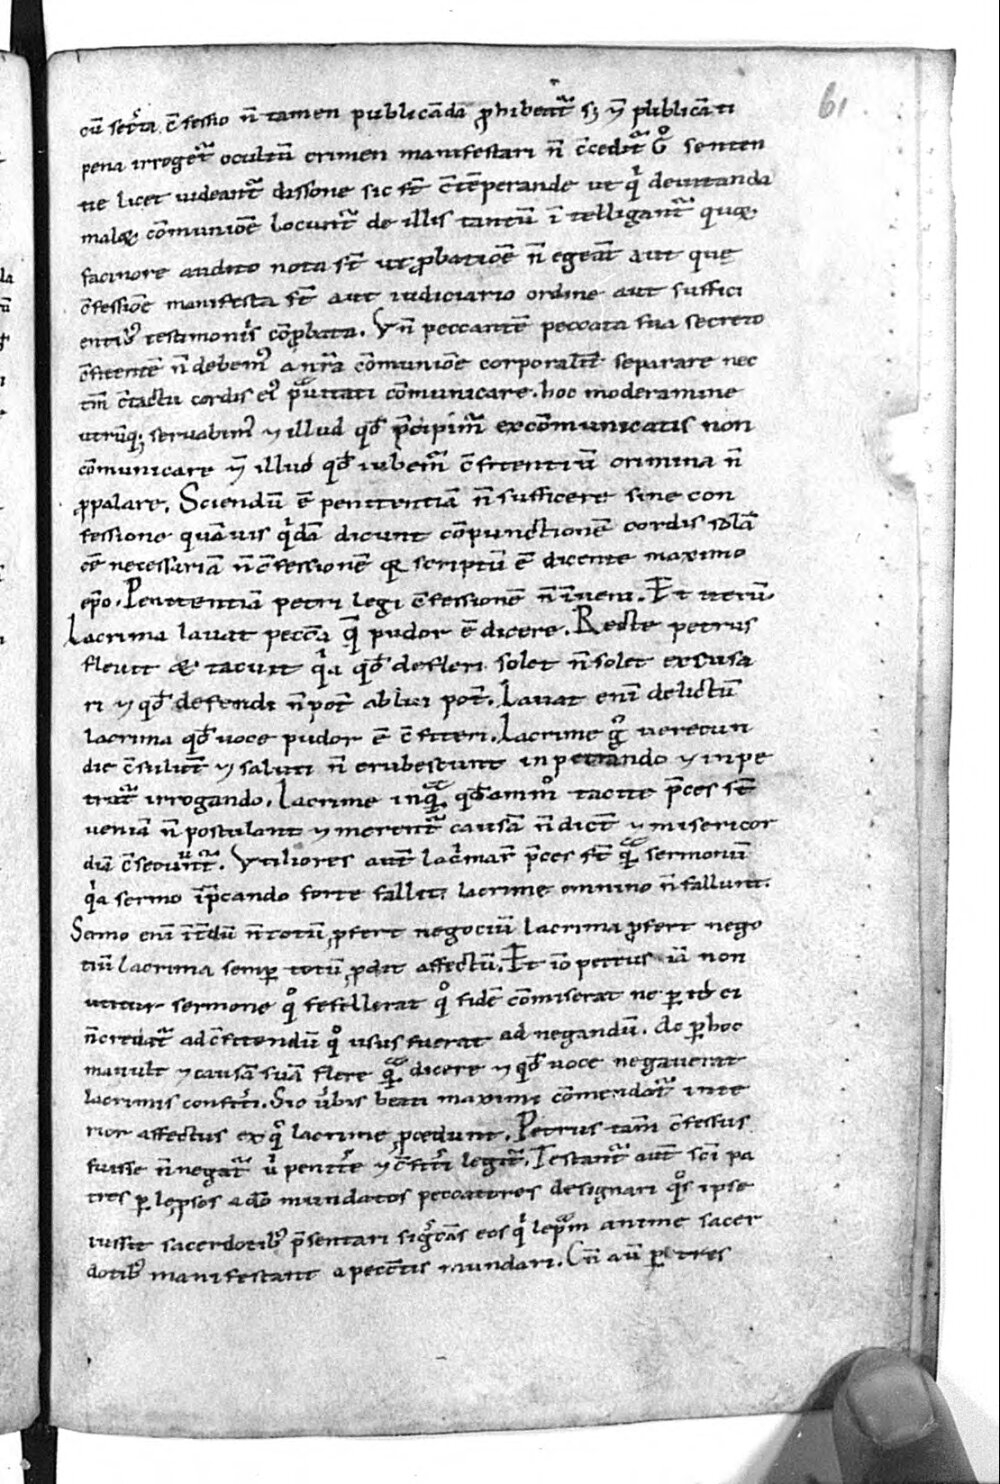 61
cū sec̄ta c̄fessio n̄ tamen publicāda ꝓhibeat᷑ sꝫ ⁊ publicāti
pena irroget᷑ ocultū crimen manifestari n̄ c̄cedit᷑ gͦ senten
tie licet uideant᷑ dissone sic st̄ c̄tēperande ut qͥ deuitanda
malaꝝ cōmunioē locunt᷑ de illis tantū ītelligant᷑ quoꝝ
facinore audito nota st̄ ut ꝓbatioē n̄ egeāt aut que
c̄fessioē manifesta st̄ aut iudiciario ordine aut suffici
entibꝰ testimoniis cōprobata. Vn̄ peccantē peccata sua secreto
c̄fitentē n̄ debemꝰ a nr̄a cōmunioē corporalit̄ separare nec
tm̄ c̄tactu cordis eiꝰ prauitati cōmunicare. hoc moderamine
utrūqꝫ seruabimꝰ ⁊ illud qd̄ p̄cipim᷑ excōmunicatis non
cōmunicare ⁊ illud qd̄ iubem᷑ c̄fitentiū crimina n̄
ꝓpalare. Sciendū ē penitentiā n̄ sufficere sine con
fessione quāuis qͥdā dicunt cōpunctionē cordis solā
eē necessariā n̄ c̄fessionē qꝛ scriptū ē dicente maximo
ep̄o. Penitentiā petri legi c̄fessionē n̄ īueni. Et iterū
Lacrima lauat pecc̄a q̄ pudor ē dicere. Recte petrus
fleuit & tacuit qͥa qd̄ defleri solet n̄ solet excusa
ri ⁊ qd̄ defendi n̄ pot̄ ablui pot̄. Lauat enī delictū
lacrima qd̄ uoce pudor ē c̄fiteri. Lacrime gͦ uerecun
die c̄sulūt ⁊ saluti n̄ erubescunt in petrando ⁊ inpe
trat᷑ irrogando. Lacrime inquā qd̄āmͦ tacite p̄ces st̄
ueniā n̄ postulant ⁊ merent᷑ causā n̄ dict̄ ⁊ misericor
diā c̄secunt᷑. Vtiliores aut̄ lacͥmaꝝ p̄ces st̄ quā sermonū
qͥa sermo īp̄cando forte fallit. lacrime omnino n̄ fallunt.
Sermo enī īt̄dū n̄ totū ꝓfert negociū lacrima ꝓfert nego
tiū lacrima semꝑ totū ꝓdit affectū. Et iō petrus iā non
utitur sermone qͦ fefellerat qͦ fidē cōmiserat ne ꝑ id ei
n̄ credat᷑ ad c̄fitendū qͦ usus fuerat ad negandū. Ac ꝑ hoc
mauult ⁊ causā suā flere quā dicere ⁊ qd̄ uoce negauerat
lacrimis confit̄i. Sic ūbis beati maximi cōmendat᷑ inte
rior affectus ex qͦ lacrime ꝓcedunt. Petrus tam̄ c̄fessus
fuisse n̄ negat᷑ ū penit̄e ⁊ c̄fit̄i legit᷑. Testant᷑ aut̄ sc̄i pa
tres ꝑ leprosos a dō mundatos peccatores designari qͦs ipse
iussit sacerdotibꝰ p̄sentari sigͦcās eos qͥ leprām anime sacer
dotibꝰ manifestant a pecc̄tis mundari. Cn̄ aū patres